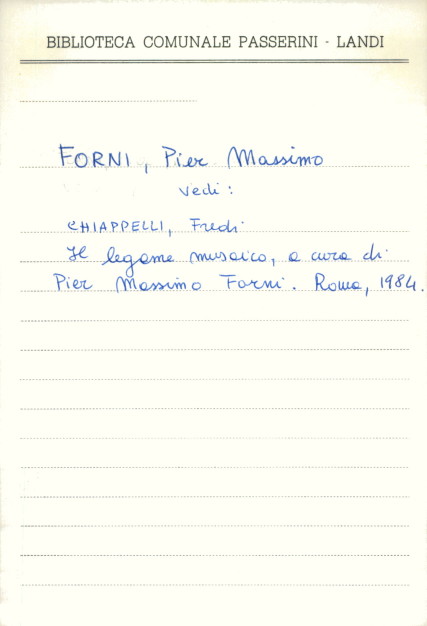 BIBLIOTECA COMUNALE PASSERINI - LANDI
FORNI, Pier Massimo
vedi:
CHIAPPELLI, Fredi
Il legame musaico, a cura di
Pier Massimo Forni. Roma, 1984.